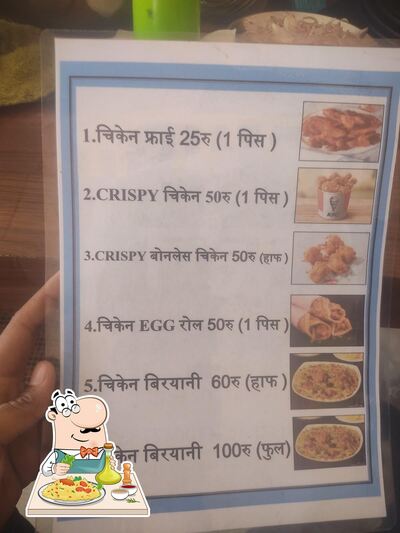 1.चिकेन फ्राई 25रु (1 पिस )
2.CRISPY चिकेन 50रु (1 पिस )
3.CRISPY बोनलेस चिकेन 50रु (हाफ )
4.चिकेन EGG रोल 50रु (1 पिस )
5.चिकेन बिरयानी 60रु (हाफ )
केन बिरयानी 100रु (फुल)